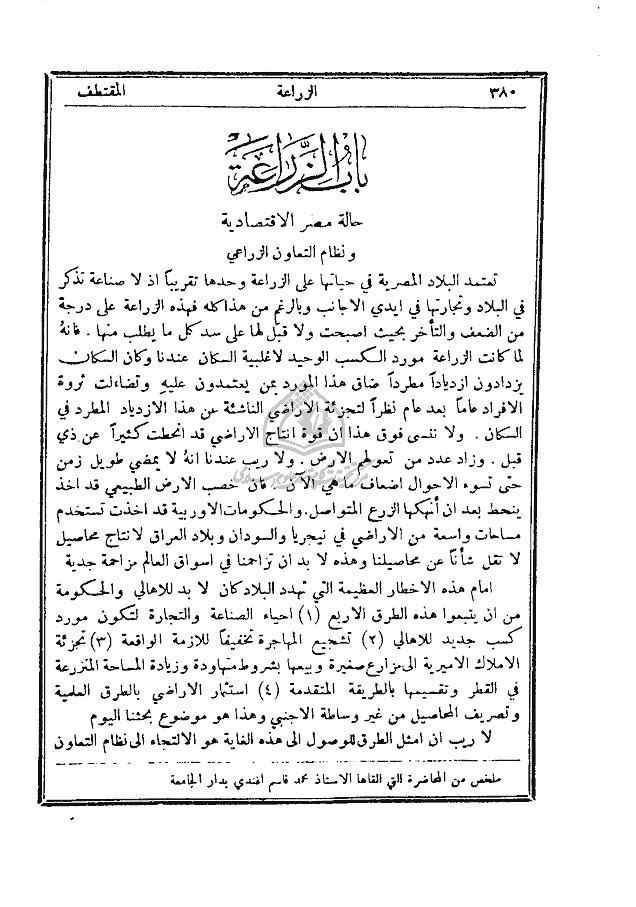 ٣٨٠ الزراعة المقتطف
باب الزراعة
حالة مصر الاقتصادية
ونظام التعاون الزراعي
تعتمد البلاد المصرية في حياتها على الزراعة وحدها تقريباً اذ لا صناعة تذكر
في البلاد وتجارتها في ايدي الاجانب وبالرغم من هذا كله فهذه الزراعة على درجة
من الضعف والتأخر بحيث اصبحت ولا قبل لها على سد كل ما يطلب منها . فانهُ
لما كانت الزراعة مورد الكسب الوحيد لاغلبية السكان عندنا وكان السكان
يزدادون ازدياداً مطرداً ضاق هذا المورد بمن يعتمدون عليهِ وتضاءلت ثروة
الافراد عاماً بعد عام نظراً لتجزئة الاراضي الناشئة عن هذا الازدياد المطرد في
السكان . ولا ننسى فوق هذا ان قوة انتاج الاراضي قد انحطت كثيراً عن ذي
قبل . وزاد عدد من تعولهم الارض . ولا ريب عندنا انهُ لا يمضي طويل زمن
حتى تسوء الاحوال اضعاف ما هي الآن . فان خصب الارض الطبيعي قد اخذ
ينحط بعد ان أنهكها الزرع المتواصل. والحكومات الاوربية قد اخذت تستخدم
مساحات واسعة من الاراضي في نيجريا والسودان وبلاد العراق لانتاج محاصيل
لا تقل شأناً عن محاصيلنا وهذه لا بد ان تزاحمنا في اسواق العالم مزاحمة جدية
امام هذه الاخطار العظيمة التي تهدد البلاد كان لا بد للاهالي والحكومة
من ان يتبعوا هذه الطرق الاربع (١) احياء الصناعة والتجارة لتكون مورد
كسب جديد للاهالي (٢) تشجيع المهاجرة تخفيفاً للازمة الواقعة (٣) تجزئة
الاملاك الاميرية الى مزارع صغيرة وبيعها بشروط متهاودة وزيادة المساحة المنزرعة
في القطر وتقسيمها بالطريقة المتقدمة (٤) استثمار الاراضي بالطرق العلمية
وتصريف المحاصيل من غير وساطة الاجنبي وهذا هو موضوع بحثنا اليوم
لا ريب ان امثل الطرق للوصول الى هذه الغاية هو الالتجاء الى نظام التعاون
ملخص من المحاضرة التي القاها الاستاذ محمد قاسم افندي بدار الجامعة